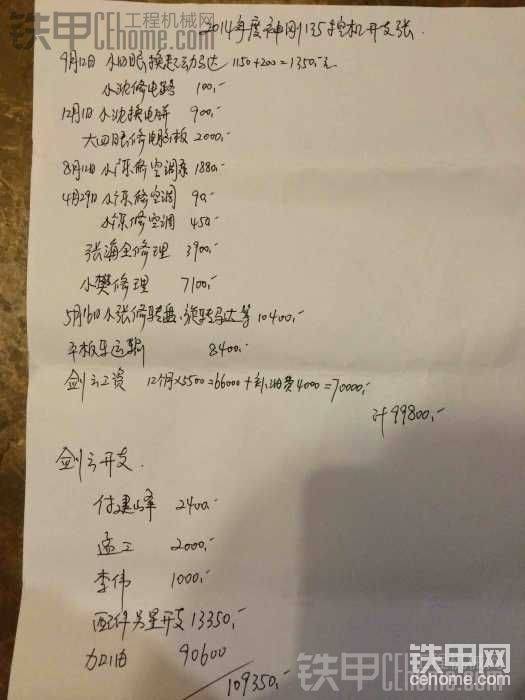 铁甲 工程机械网
CEhome.com
2014年度神刚135挖机开支
9月12日 小四眼换起动马达 1150+200=1350,-元
小沈修电路 100,-
12月1日 小沈换电瓶 900,-
大四眼修电脑板 2000,-
8月12日 小广东修空调泵 1880,-
4月29日 修空调 90,-
小广东修空调 450,-
张海全修理 3900,-
小樊修理 7100,-
5月16日 小张修转盘、旋转马达等 10400,-
平板车运输 8400,-
剑云工资 12个月×5500=66000+补油费4000=70000,-
计99800,-
剑云开支
付建峰 2400,-
孟工 2000,-
李伟 1000,-
配件另星开支 13350,-
加油 90600
109350,-
铁甲 工程机械网
CEhome.com
铁甲网
cehome.com